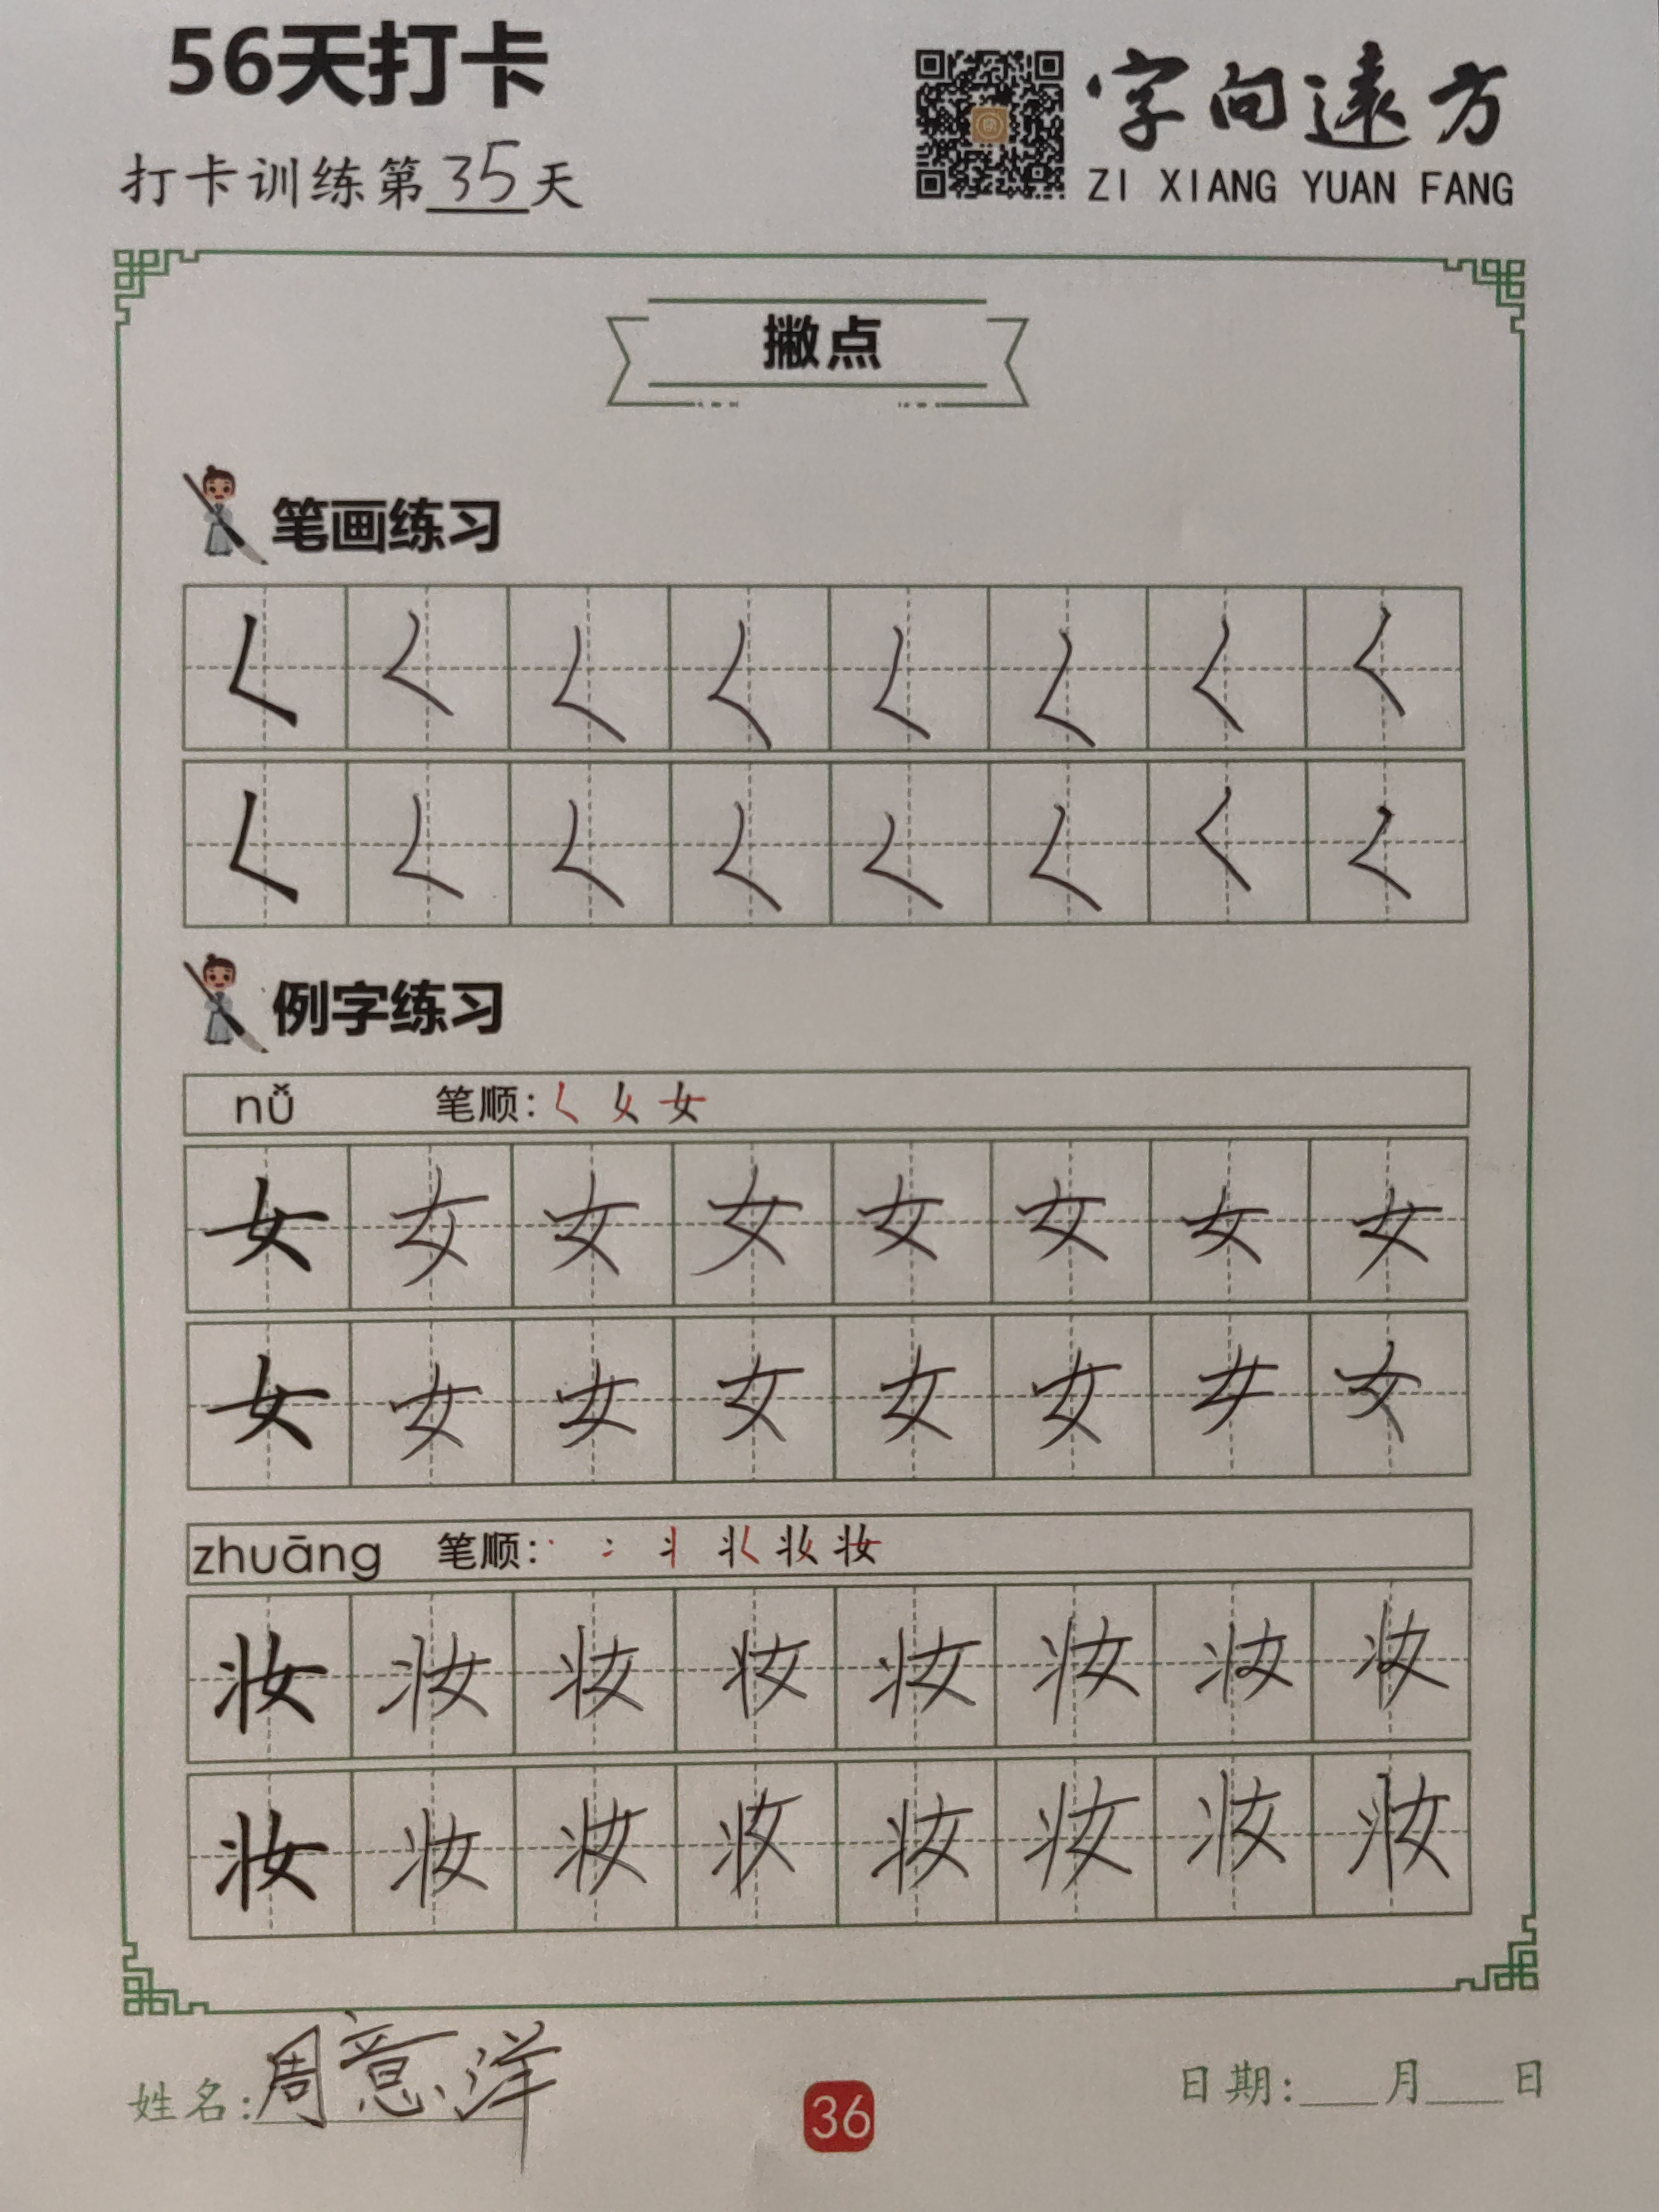 56天打卡
字向遠方
打卡训练第35天
ZI XIANG YUAN FANG
撇点
笔画练习
𡿨 𡿨 𡿨 𡿨 𡿨 𡿨 𡿨 𡿨
𡿨 𡿨 𡿨 𡿨 𡿨 𡿨 𡿨 𡿨
例字练习
nǚ 笔顺: 𡿨 女 女
女 女 女 女 女 女 女 女
女 女 女 女 女 女 女 女
zhuāng 笔顺: 丶 冫 丬 妆 妆 妆
妆 妆 妆 妆 妆 妆 妆 妆
妆 妆 妆 妆 妆 妆 妆 妆
姓名:周意洋
36
日期:___月___日